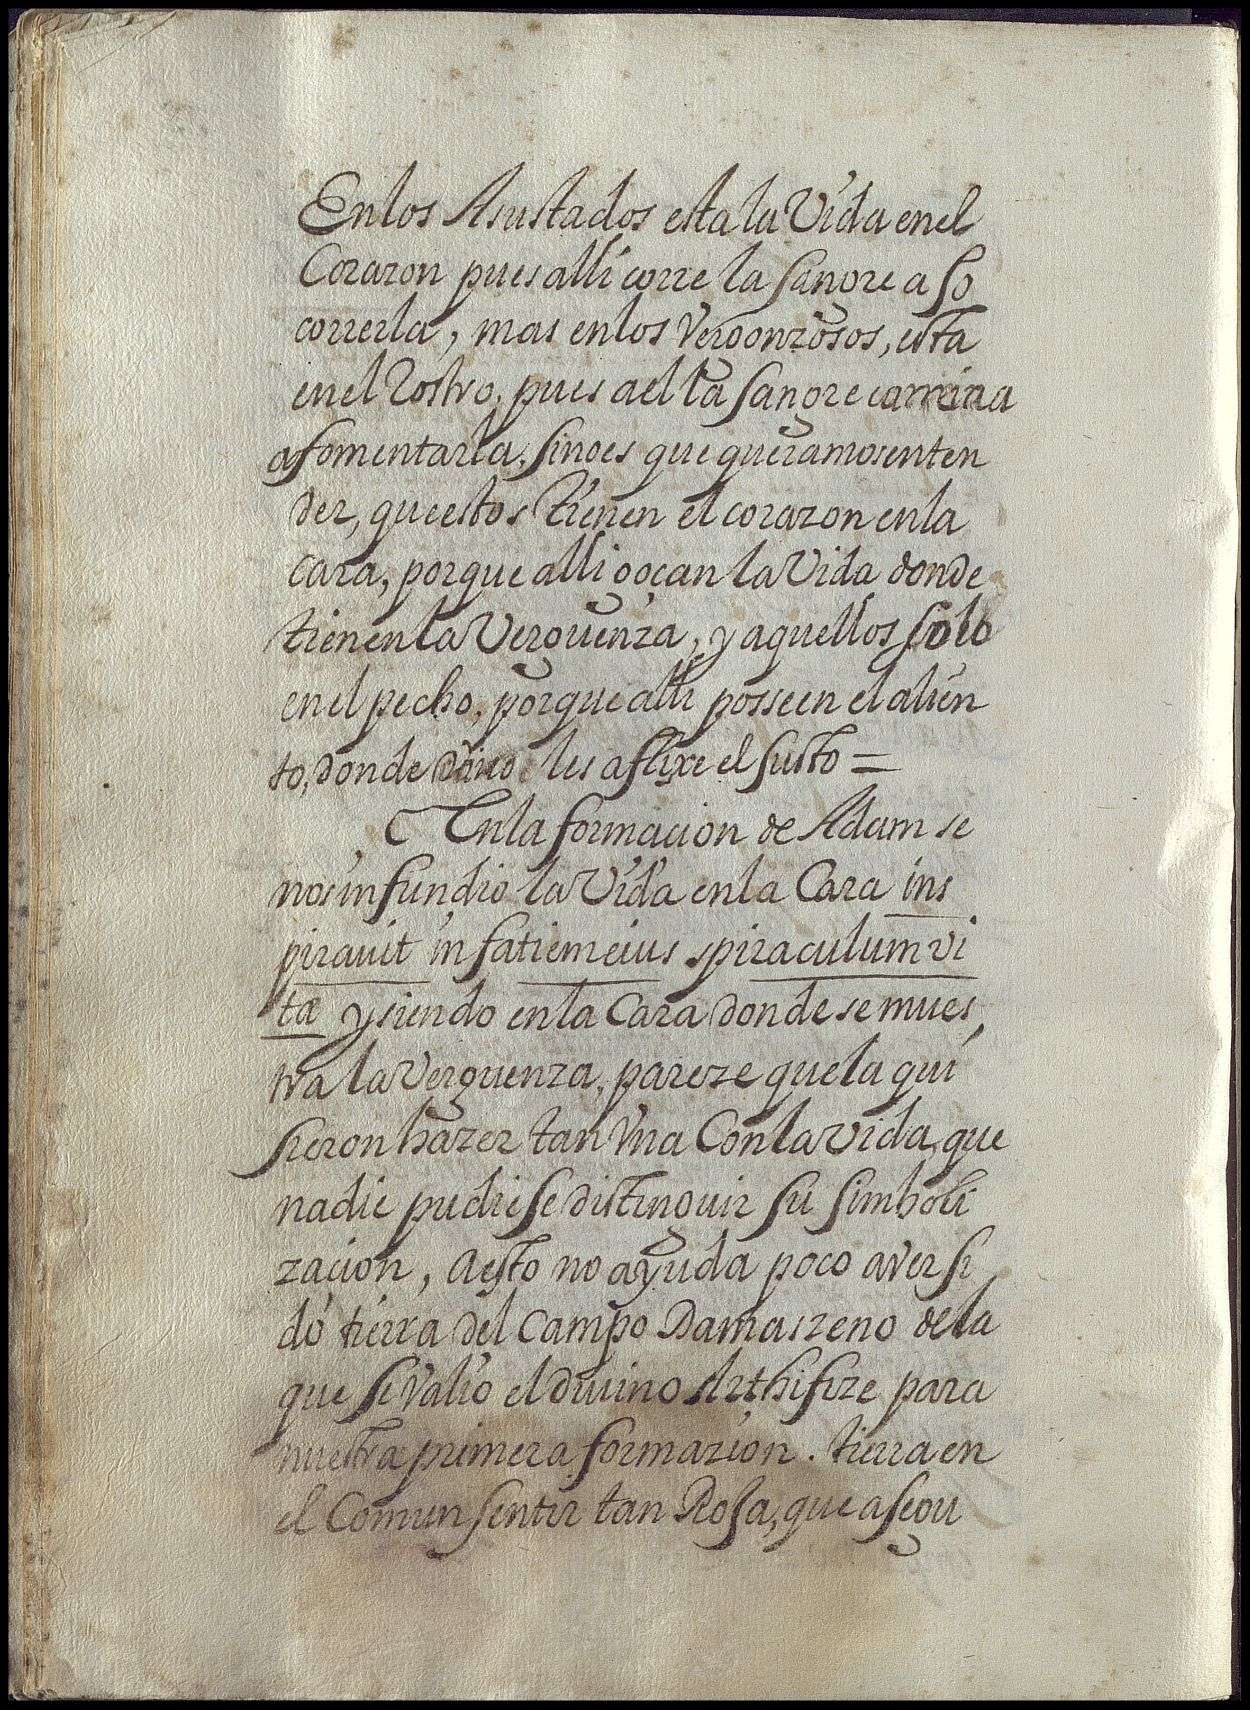 En los Asustados esta la Vida en el
Corazon pues alli corre la sangre a so
correrla, mas en los Vergonzosos, esta
en el Rostro, pues a el la sangre camina
a fomentarla, sino es que queramos enten
der, que estos tienen el corazon en la
cara, porque alli goçan la Vida donde
tienen la Verguenza, y aquellos solo
en el pecho, porque alli posseen el alien
to, donde les aflixe el susto =
En la formacion de Adam se
nos infundio la Vida en la Cara ins
pirauit in fatiem eius spiraculum vi
tæ y siendo en la Cara donde se mues
tra la verguenza, pareze que la qui
sieron hazer tan Vna Con la vida, que
nadie pudiese distinguir su simboli
zacion, a esto no ayuda poco aver si
do tierra del Campo Damaszeno de la
que se valio el diuino Arthifize para
nuestra primera formazion. tierra en
el Comun sentir tan Rosa, que asegu